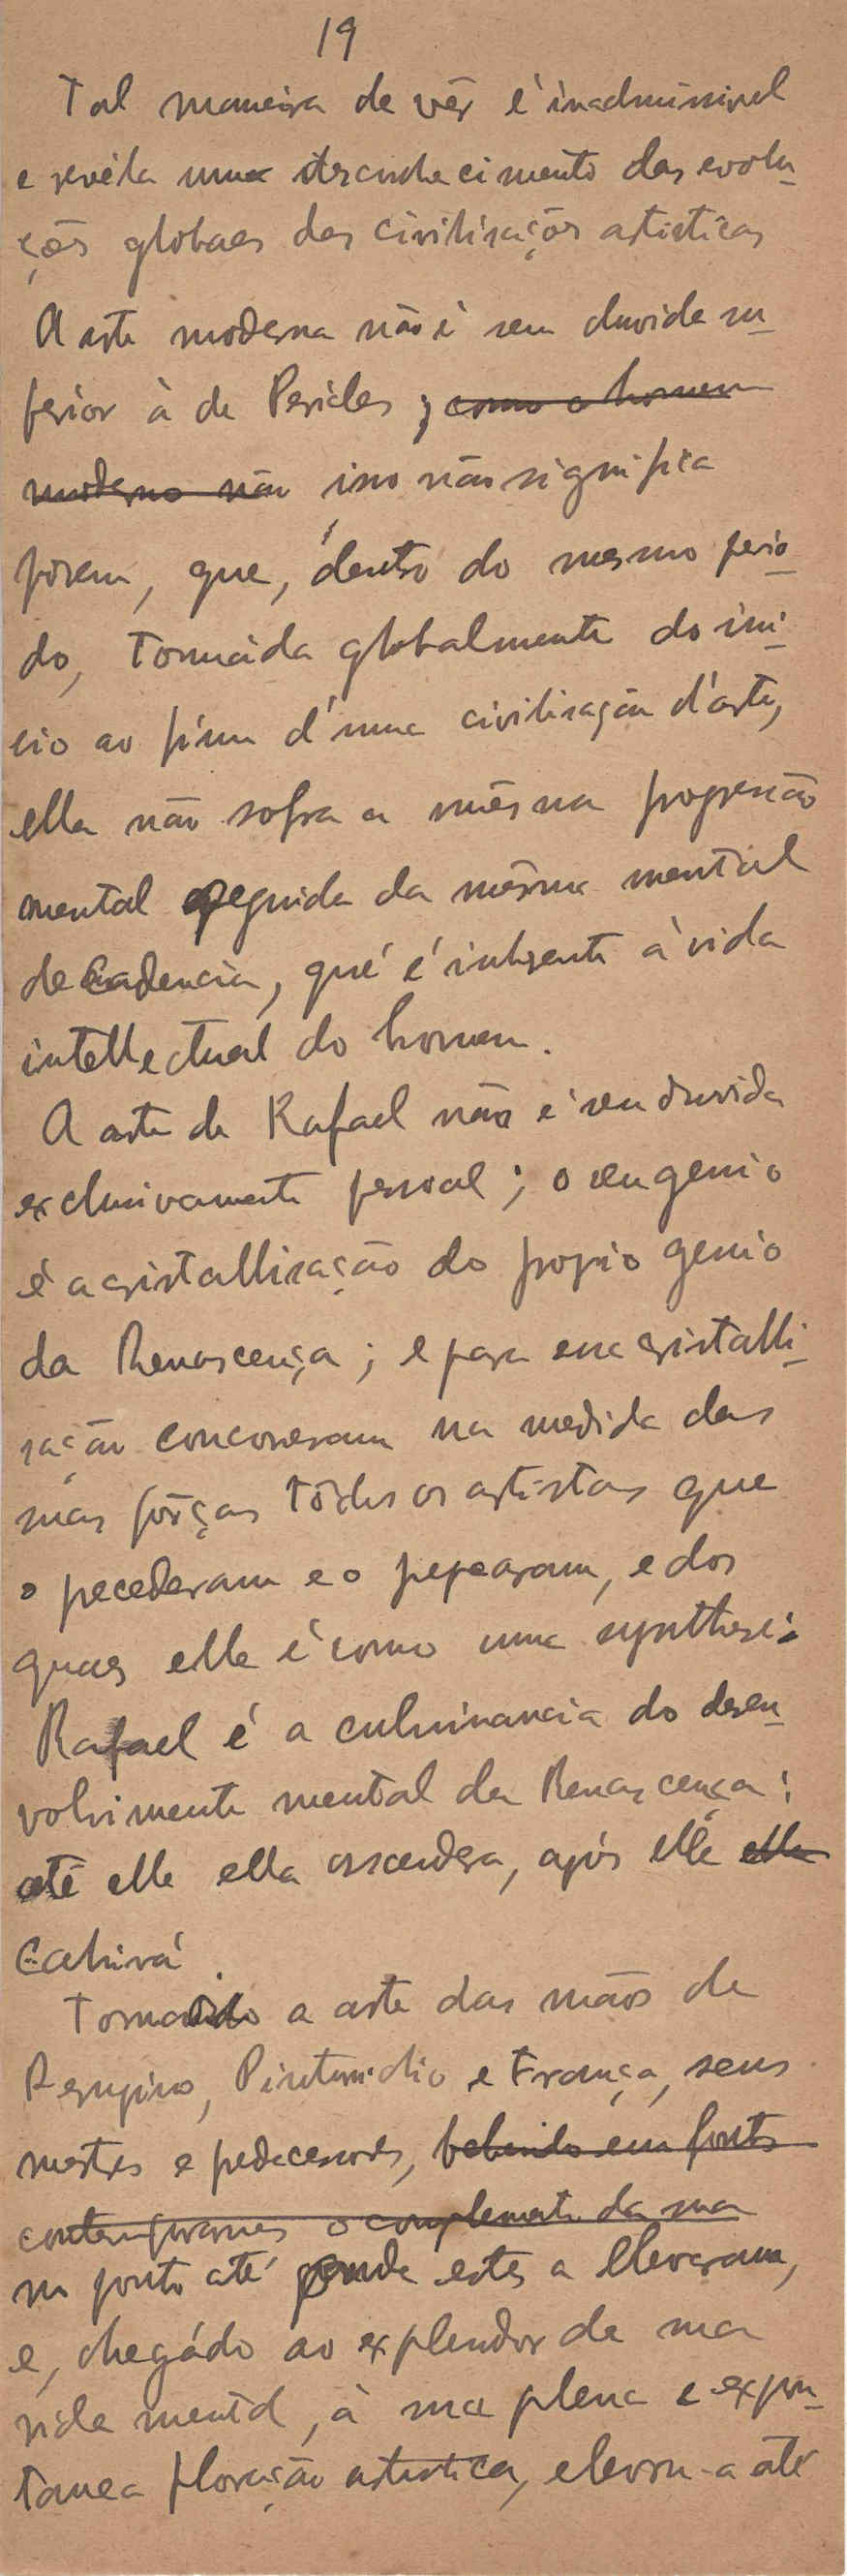 19
Tal maneira de vêr é inadmissivel
e revéla um desconhecimento das evolu-
ções globaes das civilisações artisticas
A arte moderna não é sem duvida su-
perior á de Pericles ; como o homem
moderno não isso não significa
porem, que, dentro do mesmo perio-
do, tomáda globalmente do ini-
cio ao fim d'uma civilisação d'arte,
ella não sofra a mêsma progressão
mental seguida da mêsma mental
decadencia, que é inherente á vida
intellectual do homem.
A arte de Rafael não é sem duvida
exclusivamente pessoal ; o seu genio
é a cristallisação do proprio genio
da Renascença ; e para essa cristalli-
sação concorreram na medida das
suas fôrças tôdos os artistas que
o precederam e o preparam, e dos
quaes elle é como uma synthese :
Rafael é a culminancia do desen-
volvimento mental da Renascença :
até elle ella ascendera, após elle ella
cahirá .
Tomando a arte das mãos de
Perugino, Pinturichio e França, seus
mestres e predecessores, bebendo em fonts
contemporanes o complemento da sua
no ponto até onde estes a elevaram,
e, chegádo ao explendor de sua
vida mental, á sua plena e expon-
tanea floração artistica, elevou-a até